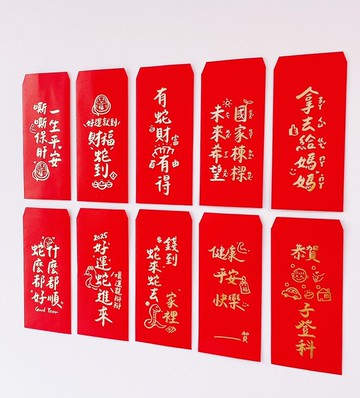 一生平安
嘶嘶保
好運
財福
蛇到
有蛇財
富
有得
國家棟樑
未來希望
拿去給媽媽
什麼都順
蛇麼都好
2025
好運蛇進來
錢到
蛇來蛇去
家裡
健康
平安
快樂
賀
恭賀
子登科